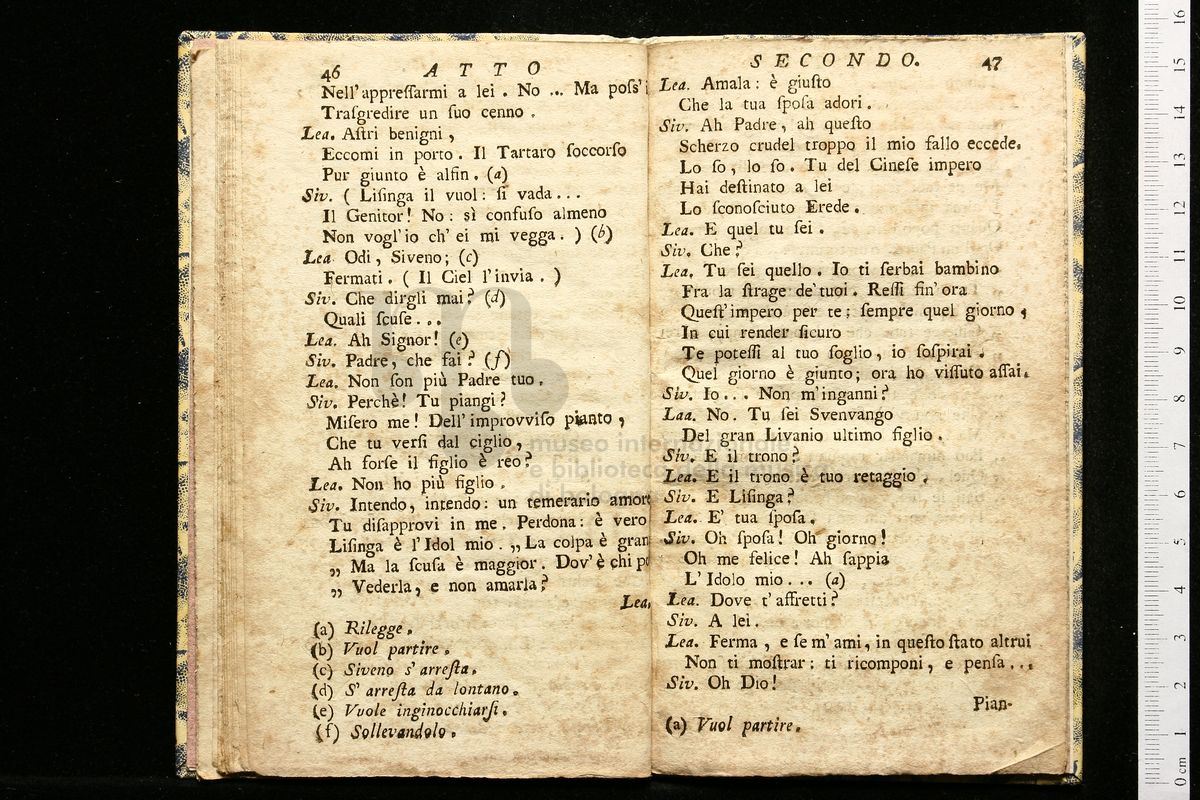 46 ATTO
Nell'appreſſarmi a lei. No ... Ma poſs'i
Traſgredire un ſuo cenno.
Lea. Aſtri benigni,
Eccomi in porto. Il Tartaro ſoccorſo
Pur giunto è alfin. (a)
Siv. ( Liſinga il vuol: ſi vada...
Il Genitor! No: sì confuſo almeno
Non vogl'io ch' ei mi vegga. ) (b)
Lea. Odi, Siveno; (c)
Fermati. ( Il Ciel l'invia. )
Siv. Che dirgli mai? (d)
Quali ſcuſe...
Lea. Ah Signor! (e)
Siv. Padre, che fai? (f)
Lea. Non ſon più Padre tuo.
Siv. Perchè! Tu piangi?
Miſero me! Dell'improvviſo pianto,
Che tu verſi dal ciglio,
Ah forſe il figlio è reo?
Lea. Non ho più figlio.
Siv. Intendo, intendo: un temerario amore
Tu diſapprovi in me. Perdona: è vero
Liſinga è l'Idol mio. „La colpa è gran
„ Ma la ſcuſa è maggior. Dov'è chi po
„ Vederla, e non amarla?
Lea.
(a) Rilegge.
(b) Vuol partire.
(c) Siveno s'arreſta.
(d) S'arreſta da lontano.
(e) Vuole inginocchiarſi.
(f) Sollevandolo.
SECONDO. 47
Lea. Amala: è giuſto
Che la tua ſpoſa adori.
Siv. Ah Padre, ah queſto
Scherzo crudel troppo il mio fallo eccede.
Lo ſo, lo ſo. Tu del Cineſe impero
Hai deſtinato a lei
Lo ſconoſciuto Erede.
Lea. E quel tu ſei.
Siv. Che?
Lea. Tu ſei quello. Io ti ſerbai bambino
Fra la ſtrage de'tuoi. Reſſi fin'ora
Queſt'impero per te; ſempre quel giorno,
In cui render ſicuro
Te poteſſi al tuo ſoglio, io ſoſpirai.
Quel giorno è giunto; ora ho viſſuto aſſai.
Siv. Io... Non m'inganni?
Laa. No. Tu ſei Svenvango
Del gran Livanio ultimo figlio.
Siv. E il trono?
Lea. E il trono è tuo retaggio.
Siv. E Liſinga?
Lea. E' tua ſpoſa.
Siv. Oh ſpoſa! Oh giorno!
Oh me felice! Ah ſappia
L'Idolo mio... (a)
Lea. Dove t'affretti?
Siv. A lei.
Lea. Ferma, e ſe m'ami, in queſto ſtato altrui
Non ti moſtrar; ti ricomponi, e penſa...
Siv. Oh Dio!
Pian-
(a) Vuol partire.
museo internazionale
e biblioteca della musica
0 cm 1 2 3 4 5 6 7 8 9 10 11 12 13 14 15 16